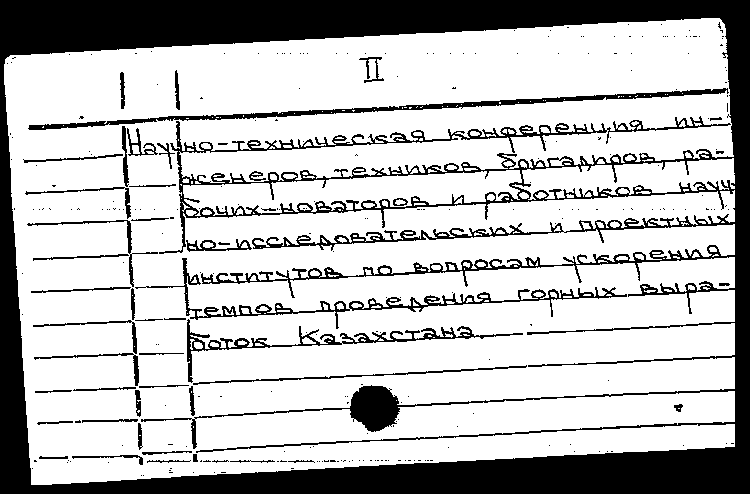 II
Научно-техническая конференция ин-
женеров, техников, бригадиров, ра-
бочих-новаторов и работников науч-
но-исследовательских и проектных
институтов по вопросам ускорения
темпов проведения горных выра-
боток Казахстана.